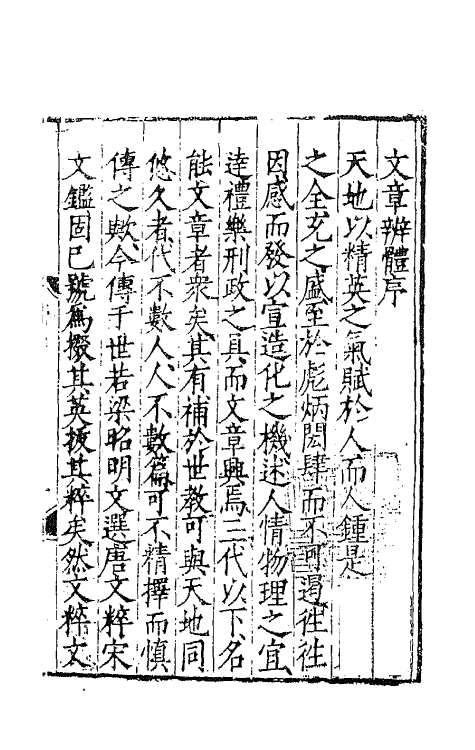 文章辨體序
天地以精英之氣賦於人而人鍾是
之全充之盛至於彪炳閎肆而不可遏徃徃
因感而發以宣造化之機述人情物理之宜
達禮樂刑政之具而文章興焉三代以下名
能文章者衆矣其有補於世教可與天地同
悠久者代不數人人不數篇可不精擇而慎
傳之歟今傳于世若梁昭明文選唐文粹宋
文鑑固已號爲掇其英拔其粹矣然文粹文